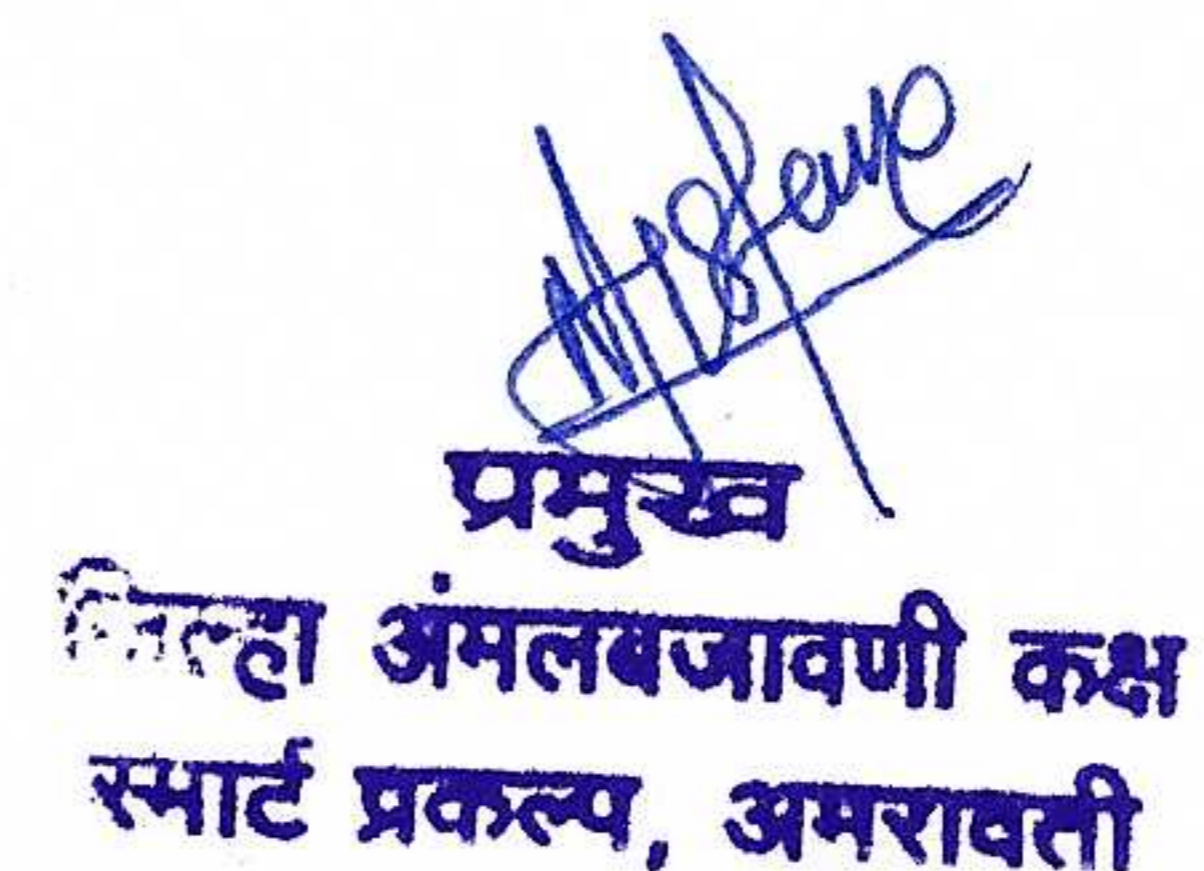 प्रमुख
जिल्हा अंमलबजावणी कक्ष
स्मार्ट प्रकल्प, अमरावती